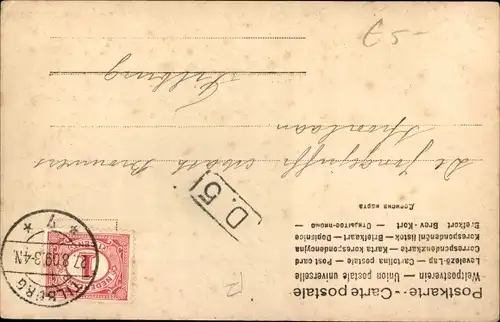 Postkarte - Carte postale
Weltpostverein — Union postale universelle
Levelező-Lap — Cartolina postale — Post card
Correspondenzkarte — Karta korespondencyjna
Korespondenční lístek — Briefkaart — Dopisnica
Brefkort Brev-Kort — Открытое письмо
Дописна карта
TILBURG
27.8.09.3-4N.
* 7 *
1
D.5
De
Spoorlaan
Tilburg
£5-